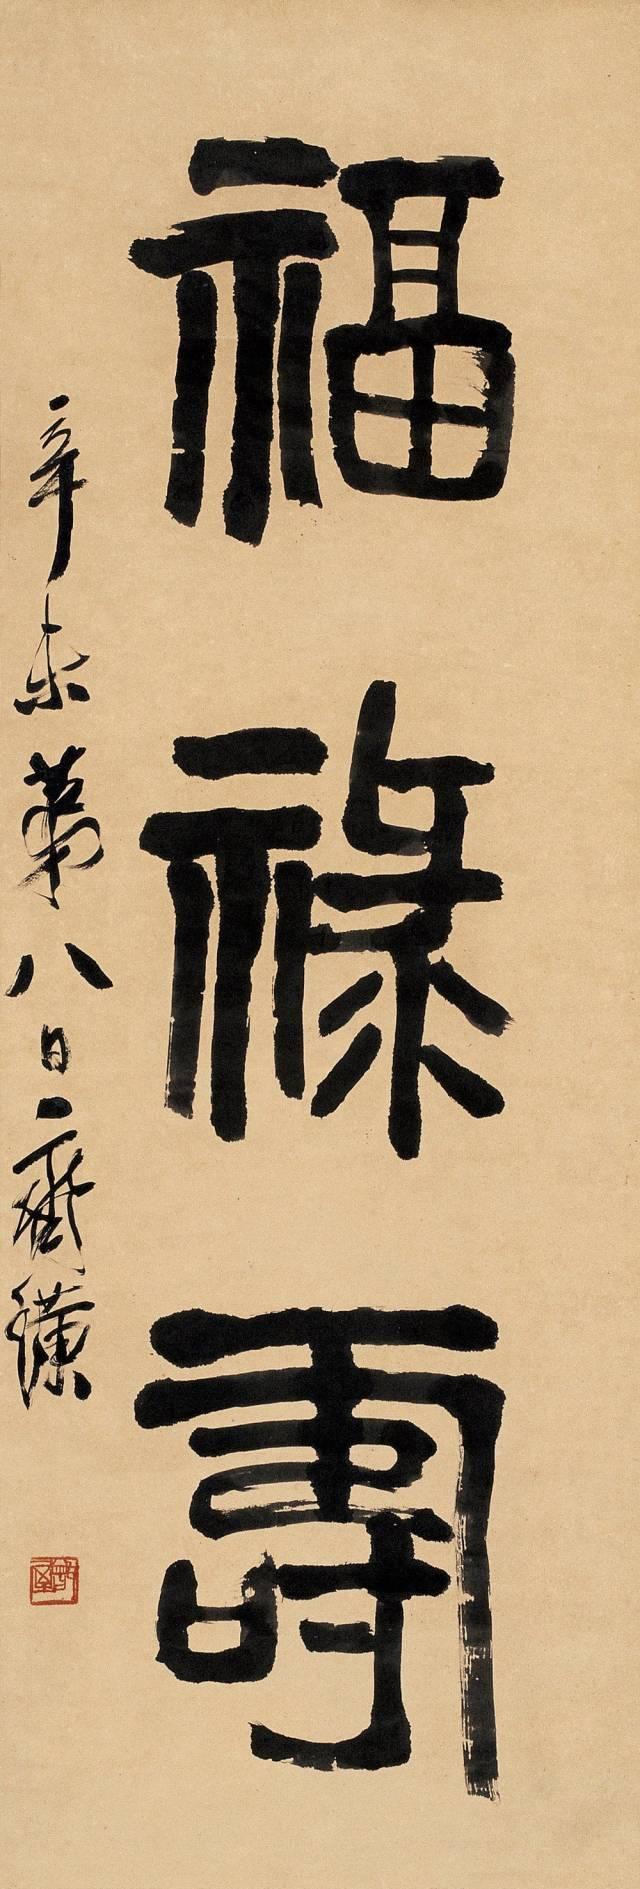 福祿壽
辛未第八日齊璜